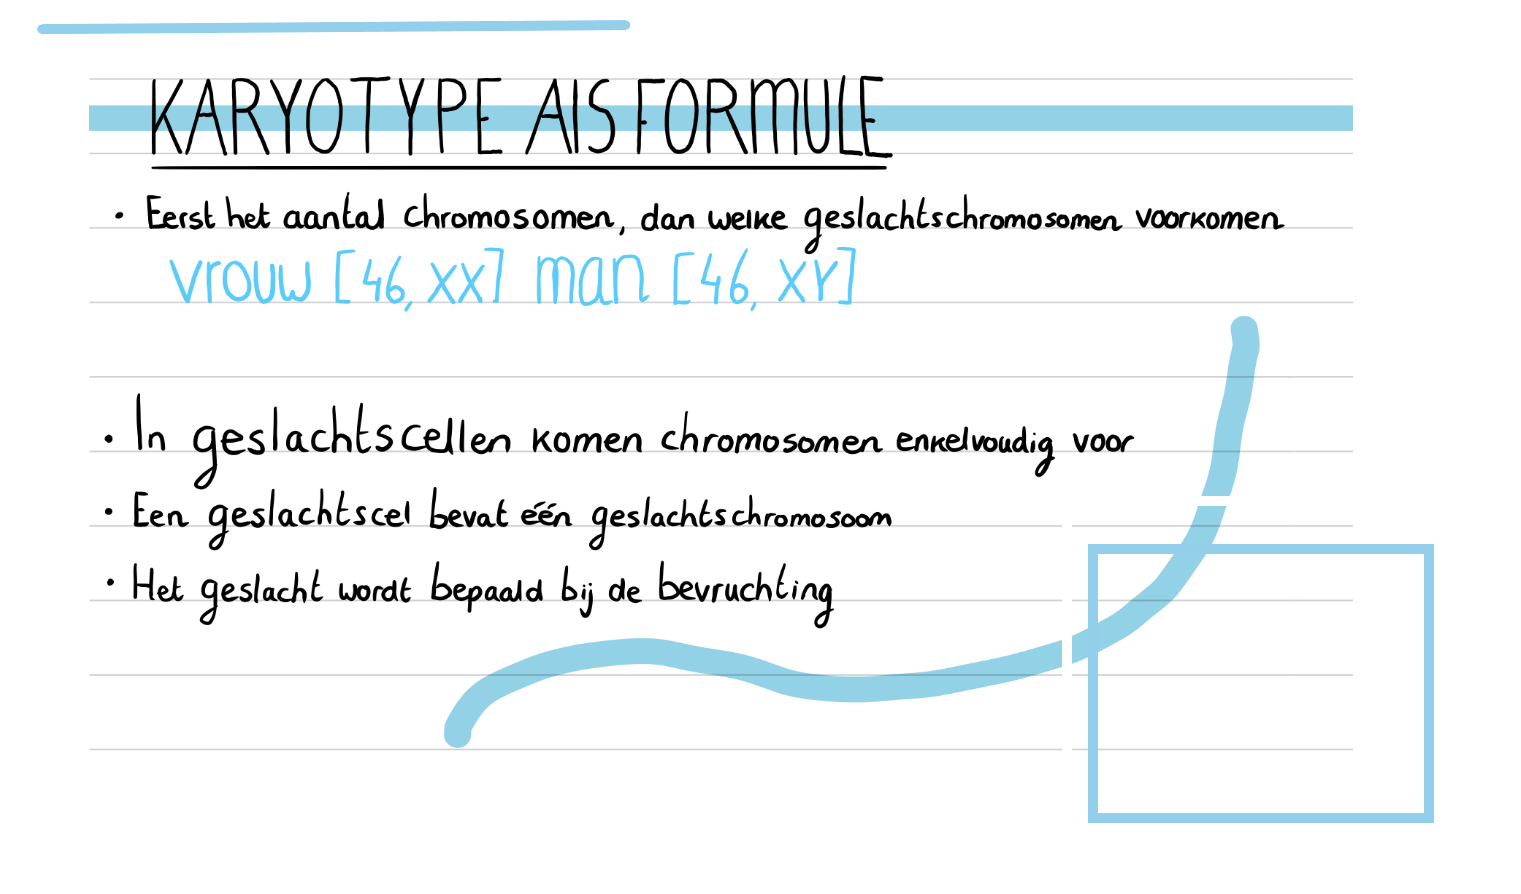 KARYOTYPE AlS FORMULE
• Eerst het aantal chromosomen, dan welke geslachtschromosomen voorkomen
vrouw [46, XX] man [46, XY]
• In geslachtscellen komen chromosomen enkelvoudig voor
• Een geslachtscel bevat één geslachtschromosoom
• Het geslacht wordt bepaald bij de bevruchting